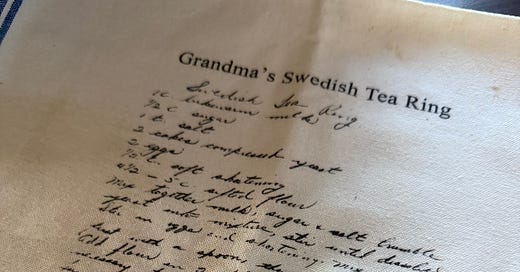 Grandma's Swedish Tea Ring
Swedish Tea Ring
1 c lukewarm milk
1/2 c sugar
1 t. salt
2 cakes compressed yeast
2 eggs
1/2 c. soft shortening
4 1/2 - 5 c sifted flour
Mix together milk, sugar & salt crumble
yeast into mixture, stir until dissolved
Stir in eggs and shortening. Mix
with a spoon, the
flour in 2
necessary